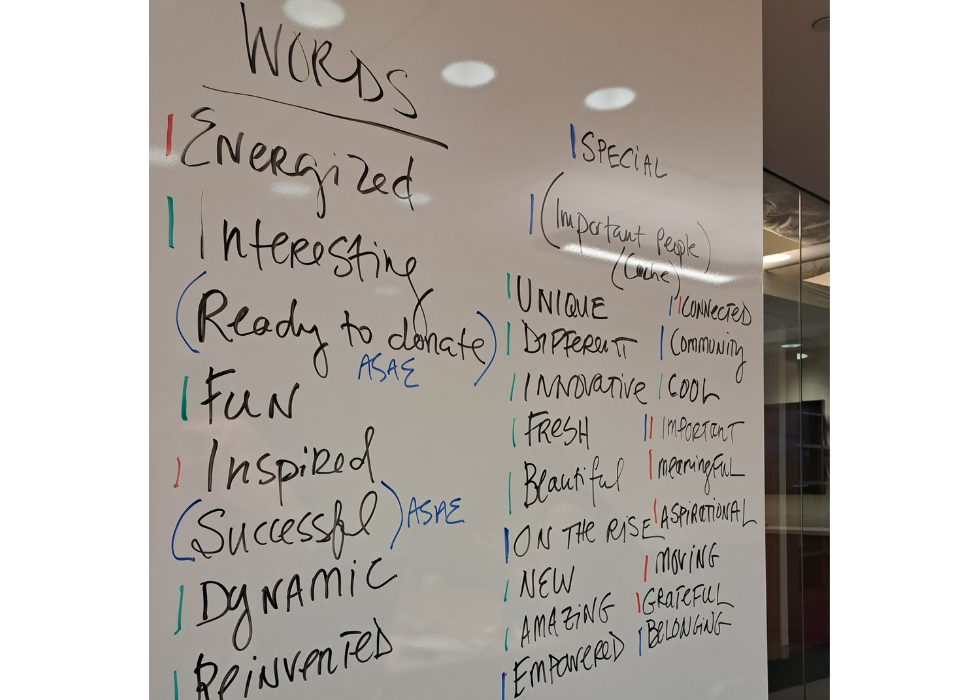 WORDS
Energized
Interesting
(Ready to donate)
ASAE
Fun
Inspired
(Successful) ASAE
Dynamic
Reinvented
SPECIAL
(Important People)
(Cache)
UNIQUE
DIFFERENT
INNOVATIVE
FRESH
Beautiful
ON THE RISE
NEW
AMAZING
EMPOWERED
CONNECTED
Community
COOL
IMPORTANT
meaningful
ASPIRATIONAL
MOVING
GRATEFUL
BELONGING